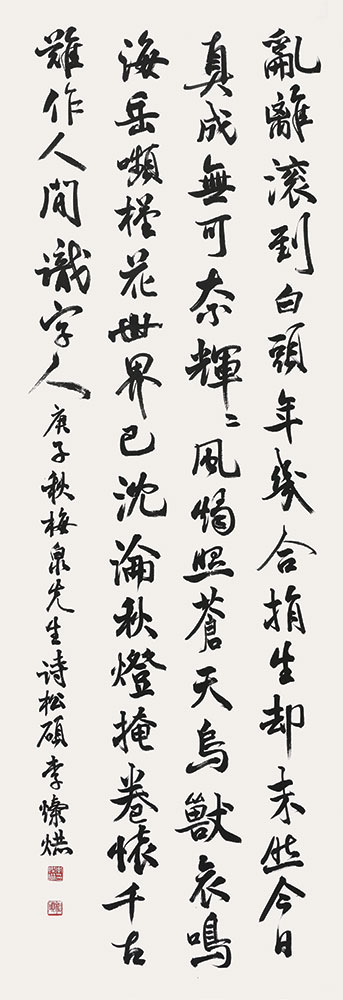 亂離滾到白頭年幾合捐生却未然今日
真成無可奈輝〻風燭照蒼天鳥獸哀鳴
海岳嚬槿花世界已沈淪秋燈掩卷懷千古
難作人間識字人庚子秋梅泉先生詩松碩李燦烘